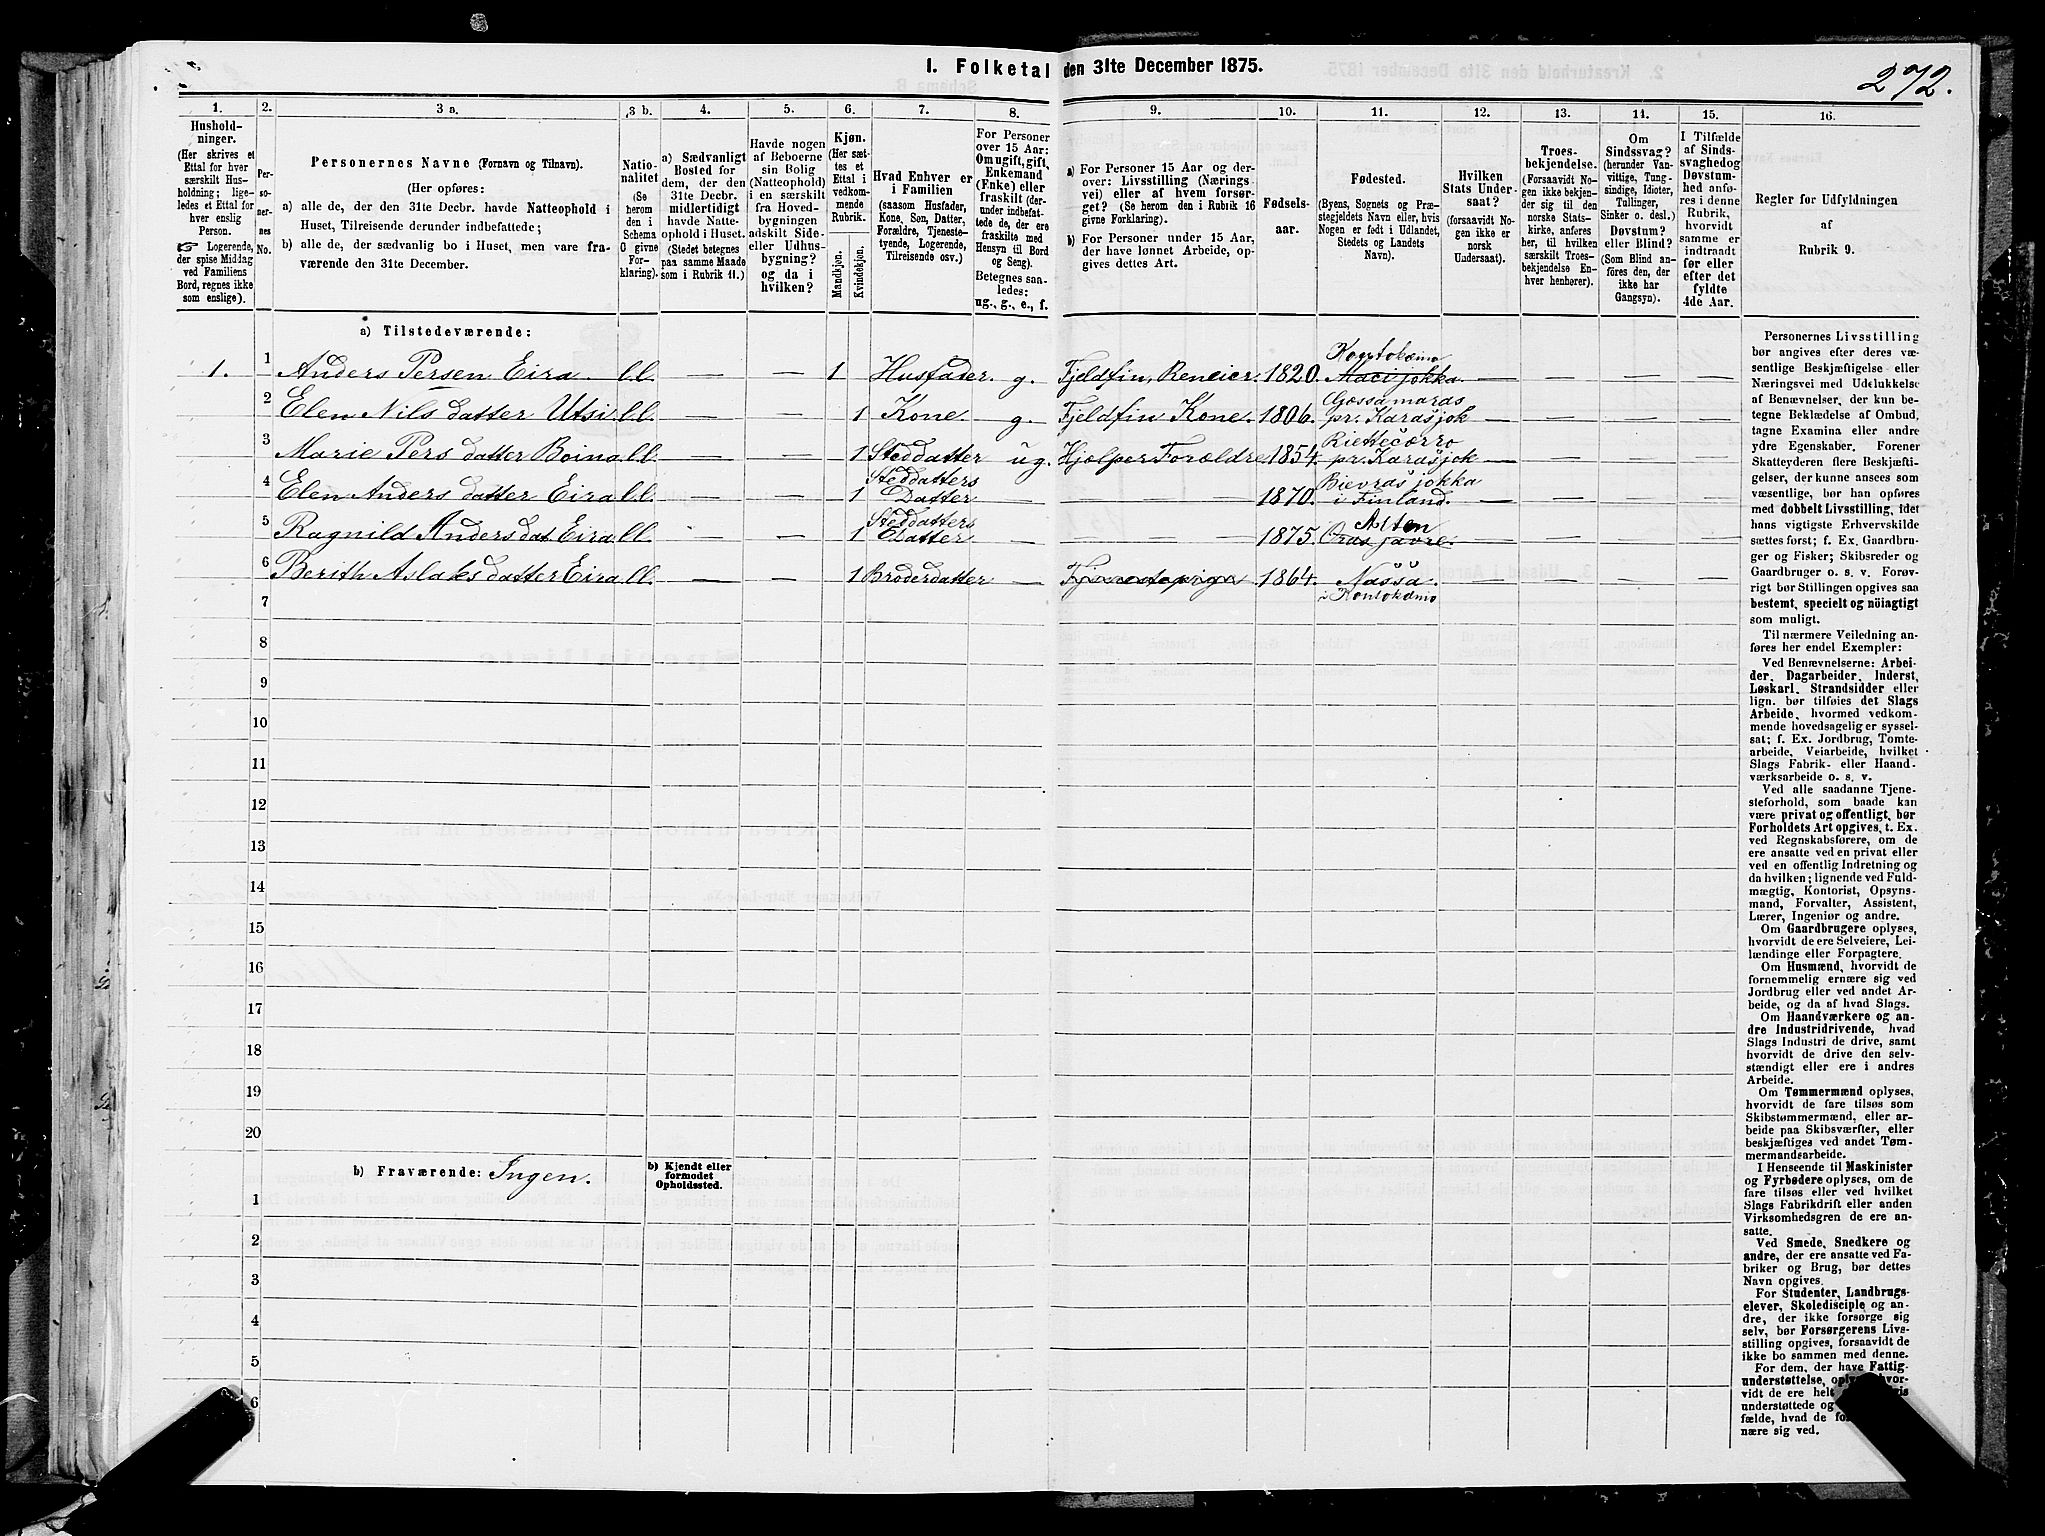 I. Folketal den 31te December 1875.
272.
1.
2.
3 a.
3 b.
4.
5.
6.
7.
8.
9.
10.
11.
12.
13.
14.
15.
16.
Hushold-
ninger.
(Her skrives et
Ettal for hver
særskilt Hus-
holdning; lige-
ledes et Ettal for
hver enslig
Person.
☞ Logerende,
der spise Middag
ved Familiens
Bord, regnes ikke
som enslige).
Per-
so-
ner-
nes
No.
Personernes Navne (Fornavn og Tilnavn).
(Her opføres:
a) alle de, der den 31te Decbr. havde Natteophold i
Huset, Tilreisende derunder indbefattede;
b) alle de, der sædvanlig bo i Huset, men vare fra-
værende den 31te December.
Natio-
nalitet
(Se
herom
den i
Schema
C givne
For-
klaring).
a) Sædvanligt
Bosted for
dem, der den
31te Decbr.
midlertidigt
havde Natte-
ophold i Huset.
(Stedet betegnes
paa samme Maade
som i Rubrik 11.)
Havde nogen
af Beboerne
sin Bolig
(Natteophold)
i en særskilt
fra Hoved-
bygningen
adskilt Side-
eller Udhus-
bygning?
og da i
hvilken?
Kjøn.
(Her sæt-
tes et
Ettal i
vedkom-
mende
Rubrik.
Mandkjøn.
Kvindekjøn.
Hvad Enhver er
i Familien
(saasom Husfader,
Kone, Søn, Datter,
Forældre, Tjeneste-
tyende, Logerende,
Tilreisende osv.)
For Personer
over 15 Aar:
Om ugift, gift,
Enkemand
(Enke) eller
fraskilt (der-
under indbefat-
tede de, der ere
fraskilte med
Hensyn til Bord
og Seng).
Betegnes saa-
ledes:
ug., g., e., f.
a) For Personer 15 Aar og der-
over: Livsstilling (Nærings-
vei) eller af hvem forsør-
get? (Se herom den i Rubrik 16
givne Forklaring).
b) For Personer under 15 Aar,
der have lønnet Arbeide, op-
gives dettes Art.
Fødsels-
aar.
Fødested.
(Byens, Sognets og Præ-
stegjeldets Navn eller, hvis
Nogen er født i Udlandet,
Stedets og Landets
Navn).
Hvilken
Stats Under-
saat?
(forsaavidt No-
gen ikke er
norsk
Undersaat).
Troes-
bekjendelse.
(Forsaavidt No-
gen ikke bekjen-
der sig til den
norske Stats-
kirke, anføres
her, til hvilken
særskilt Troes-
bekjendelse En-
hver henhører).
Om
Sindssvag?
(herunder Van-
vittige, Tung-
sindige, Idioter,
Tullinger,
Sinker o. desl.)
Døvstum?
eller Blind?
(Som Blind an-
føres den, der
ikke har
Gangsyn).
I Tilfælde
af Sinds-
svaghed og
Døvstum-
hed anfø-
res i denne
Rubrik,
hvorvidt
samme er
indtraadt
før eller
efter det
fyldte
4de Aar.
Regler for Udfyldningen
af
Rubrik 9.
a) Tilstedeværende:
1. 1 Anders Persen Eira l.l. — — 1 Husfader. g. Fjeldfin, Reneier. 1820. Kautokeino Maci jokka. — — — —
2 Elen Nils datter Utsi l.l. — — 1 Kone. g. Fjeldfin Kone. 1806. Gossamaras pr. Karasjok — — — —
3 Marie Pers datter Boina l.l. — — 1 Steddatter ug. Hjelper Forældre 1854. Riettecorro pr. Karasjok — — — —
4 Elen Anders datter Eira l.l. — — 1 Steddatters Datter — — 1870. Bievras jokka i Finland. — — — —
5 Ragnild Anders dat Eira l.l. — — 1 Steddatters Datter — — 1875. Alten Oras javre. — — — —
6 Berith Aslaks datter Eira l.l. — — 1 Broderdatter — Tjenestepige 1864. Nassa. i Kautokeino — — — —
7
8
9
10
11
12
13
14
15
16
17
18
19
20
b) Fraværende: Ingen.
b) Kjendt eller
formodet
Opholdssted.
1
2
3
4
5
6
Personernes Livsstilling
bør angives efter deres væ-
sentlige Beskjæftigelse eller
Næringsvei med Udelukkelse
af Benævnelser, der kun be-
tegne Beklædelse af Ombud,
tagne Examina eller andre
ydre Egenskaber. Forener
Skatteyderen flere Beskjæfti-
gelser, der kunne ansees som
væsentlige, bør han opføres
med dobbelt Livsstilling, idet
hans vigtigste Erhvervskilde
sættes først; f. Ex. Gaardbru-
ger og Fisker; Skibsreder og
Gaardbruger o. s. v. Forøv-
rigt bør Stillingen opgives saa
bestemt, specielt og nöiagtigt
som muligt.
Til nærmere Veiledning an-
føres her endel Exempler:
Ved Benævnelserne: Arbei-
der, Dagarbeider, Inderst,
Løskarl, Strandsidder eller
lign. bør tilføies det Slags
Arbeide, hvormed vedkom-
mende hovedsagelig er syssel-
sat; f. Ex. Jordbrug, Tomte-
arbeide, Veiarbeide, hvilket
Slags Fabrik- eller Haand-
værksarbeide o. s. v.
Ved alle saadanne Tjene-
steforhold, som baade kan
være privat og offentligt, bør
Forholdets Art opgives, t. Ex.
ved Regnskabsførere, om de
ere ansatte ved en privat eller
ved en offentlig Indretning og
da hvilken; lignende ved Fuld-
mægtig, Kontorist, Opsyns-
mand, Forvalter, Assistent,
Lærer, Ingeniør og andre.
Om Gaardbrugere oplyses,
hvorvidt de ere Selveiere, Lei-
lændinge eller Forpagtere.
Om Husmænd, hvorvidt de
fornemmelig ernære sig ved
Jordbrug eller ved andet Ar-
beide, og da af hvad Slags.
Om Haandværkere og an-
dre Industridrivende, hvad
Slags Industri de drive, samt
hvorvidt de drive den selv-
stændigt eller ere i andres
Arbeide.
Om Tømmermænd oplyses,
hvorvidt de fare tilsøs som
Skibstømmermænd, eller ar-
beide paa Skibsværfter, eller
beskjæftiges ved andet Tøm-
mermandsarbeide.
I Henseende til Maskinister
og Fyrbødere oplyses, om de
fare tilsøs eller ved hvilket
Slags Fabrikdrift eller anden
Virksomhedsgren de ere an-
satte.
Ved Smede, Snedkere og
andre, der ere ansatte ved Fa-
briker og Brug, bør dettes
Navn opgives.
For Studenter, Landbrugs-
elever, Skoledisciple og an-
dre, der ikke forsørge sig
selv, bør Forsørgerens Livs-
stilling opgives, forsaavidt de
ikke bo sammen med denne.
For dem, der have Fattig-
understøttelse,
vidt de ere helt
understøttede og
fælde, hvad de
nære sig ved.